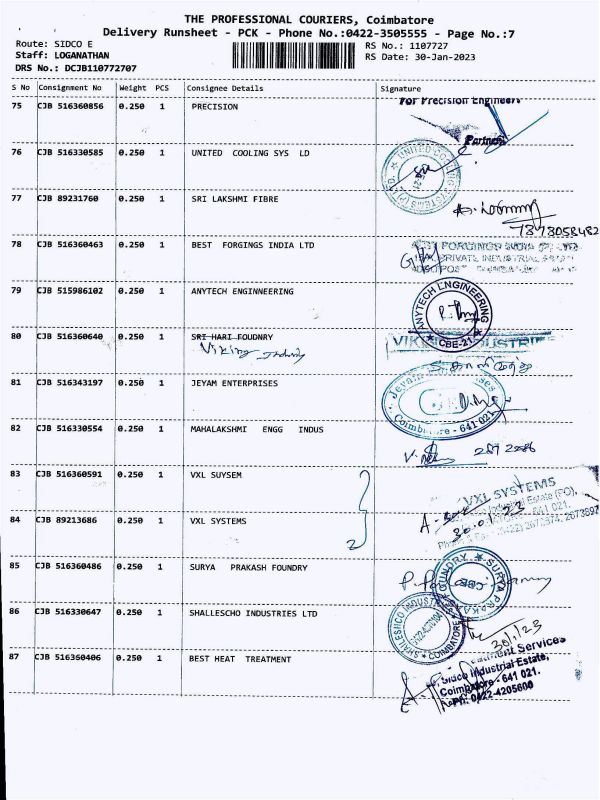 THE PROFESSIONAL COURIERS, Coimbatore
Delivery Runsheet - PCK - Phone No.:0422-3505555 - Page No.:7
Route: SIDCO E
RS No.: 1107727
Staff: LOGANATHAN
RS Date: 30-Jan-2023
DRS No.: DCJB110772707
S No Consignment No Weight PCS Consignee Details Signature
75 CJB 516360856 0.250 1 PRECISION
For Precision Engineers
Partner
76 CJB 516330585 0.250 1 UNITED COOLING SYS LD
77 CJB 89231760 0.250 1 SRI LAKSHMI FIBRE
7373058482
78 CJB 516360463 0.250 1 BEST FORGINGS INDIA LTD
79 CJB 515986102 0.250 1 ANYTECH ENGINNEERING
ANYTECH ENGINEERING
CBE-21
80 CJB 516360640 0.250 1 SRI HARI FOUDNRY
Viking Industry
81 CJB 516343197 0.250 1 JEYAM ENTERPRISES
Coimbatore - 641 021
82 CJB 516330554 0.250 1 MAHALAKSHMI ENGG INDUS
83 CJB 516360591 0.250 1 VXL SUYSEM
VXL SYSTEMS
30.01.23
84 CJB 89213686 0.250 1 VXL SYSTEMS
2
85 CJB 516360486 0.250 1 SURYA PRAKASH FOUNDRY
86 CJB 516330647 0.250 1 SHALLESCHO INDUSTRIES LTD
30/1/23
87 CJB 516360406 0.250 1 BEST HEAT TREATMENT
Treatment Services
Sidco Industrial Estate,
Coimbatore - 641 021.
Ph: 0422-4205600